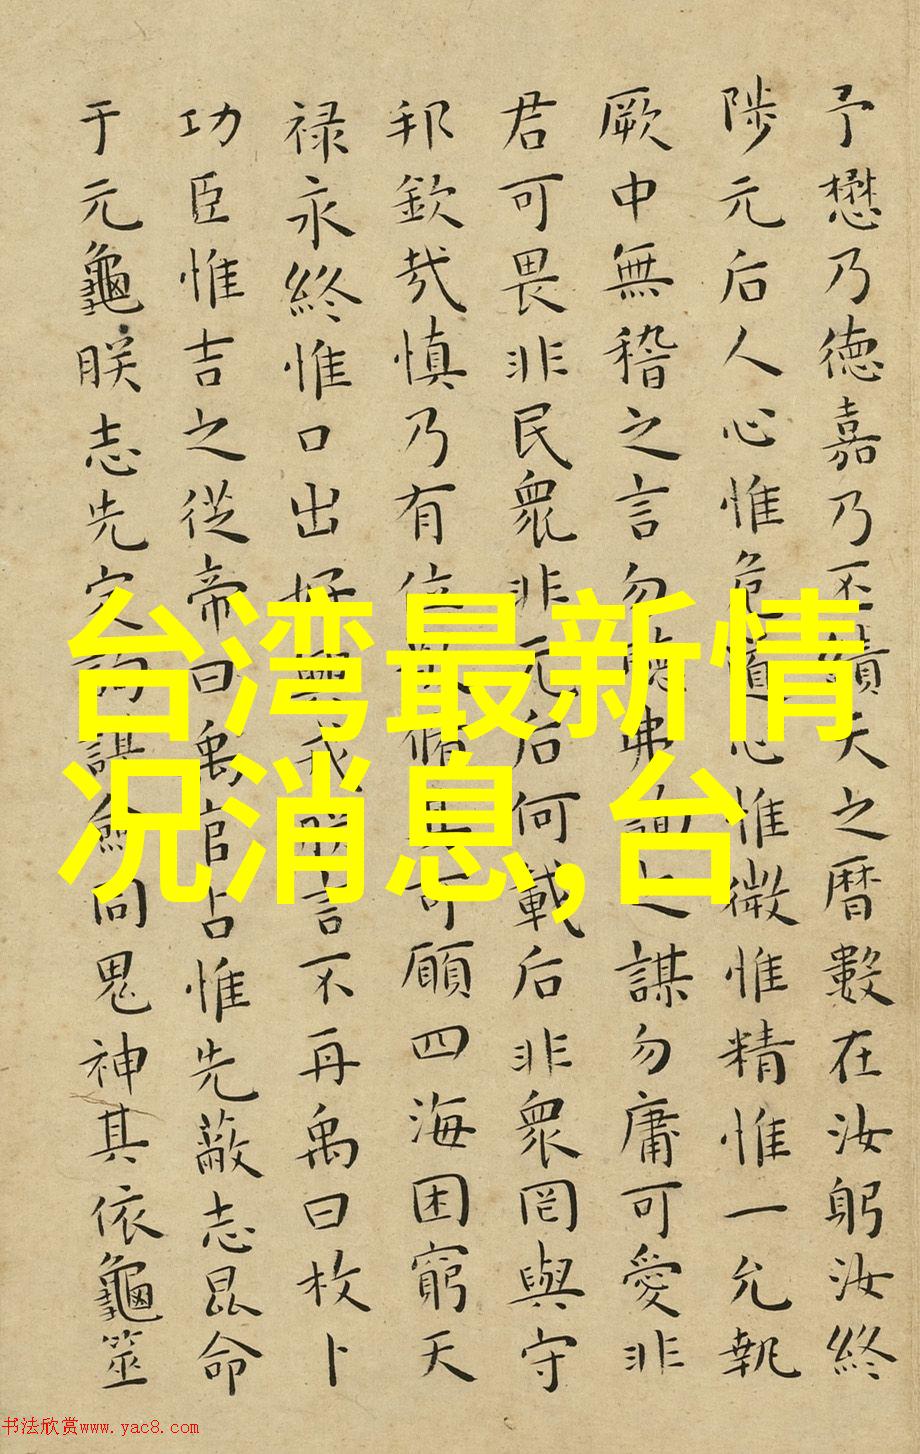 予懋乃德嘉乃丕績天之曆數在汝躬汝終
陟元后人心惟危道心惟微惟精惟一允執
厥中無稽之言勿聽弗詢之謀勿庸可愛非
君可畏非民眾非元后何載后非眾罔與守
邦欽哉慎乃有位敬脩其可願四海困窮天
祿永終惟口出好興戎朕言不再禹曰枚卜
功臣惟吉之從帝曰禹官占惟先蔽志昆命
于元龜朕志先定詢謀僉同鬼神其依龜筮
台湾最新情
况消息,台
书法欣赏www.yac8.com